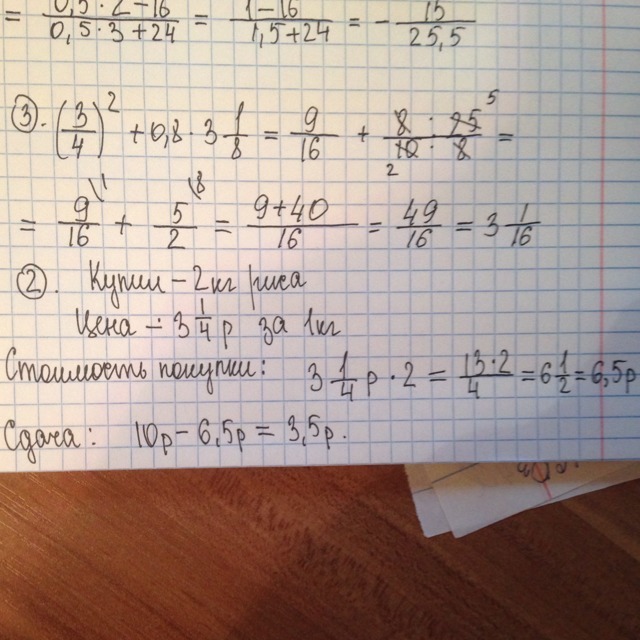 = (0,5 · 2 − 16)/(0,5 · 3 + 24) = (1 − 16)/(1,5 + 24) = − 15/25,5
③. (3/4)² + 0,8 · 3 1/8 = 9/16 + (8 · 25 5)/(10 2 · 8) =
= 9/16 \1 + 5/2 \8 = (9+40)/16 = 49/16 = 3 1/16
②. Купил – 2кг риса
Цена – 3 1/4 р за 1кг
Стоимость покупки: 3 1/4 р · 2 = (13 · 2)/4 = 6 1/2 = 6,5р
Сдача: 10р – 6,5р = 3,5р.